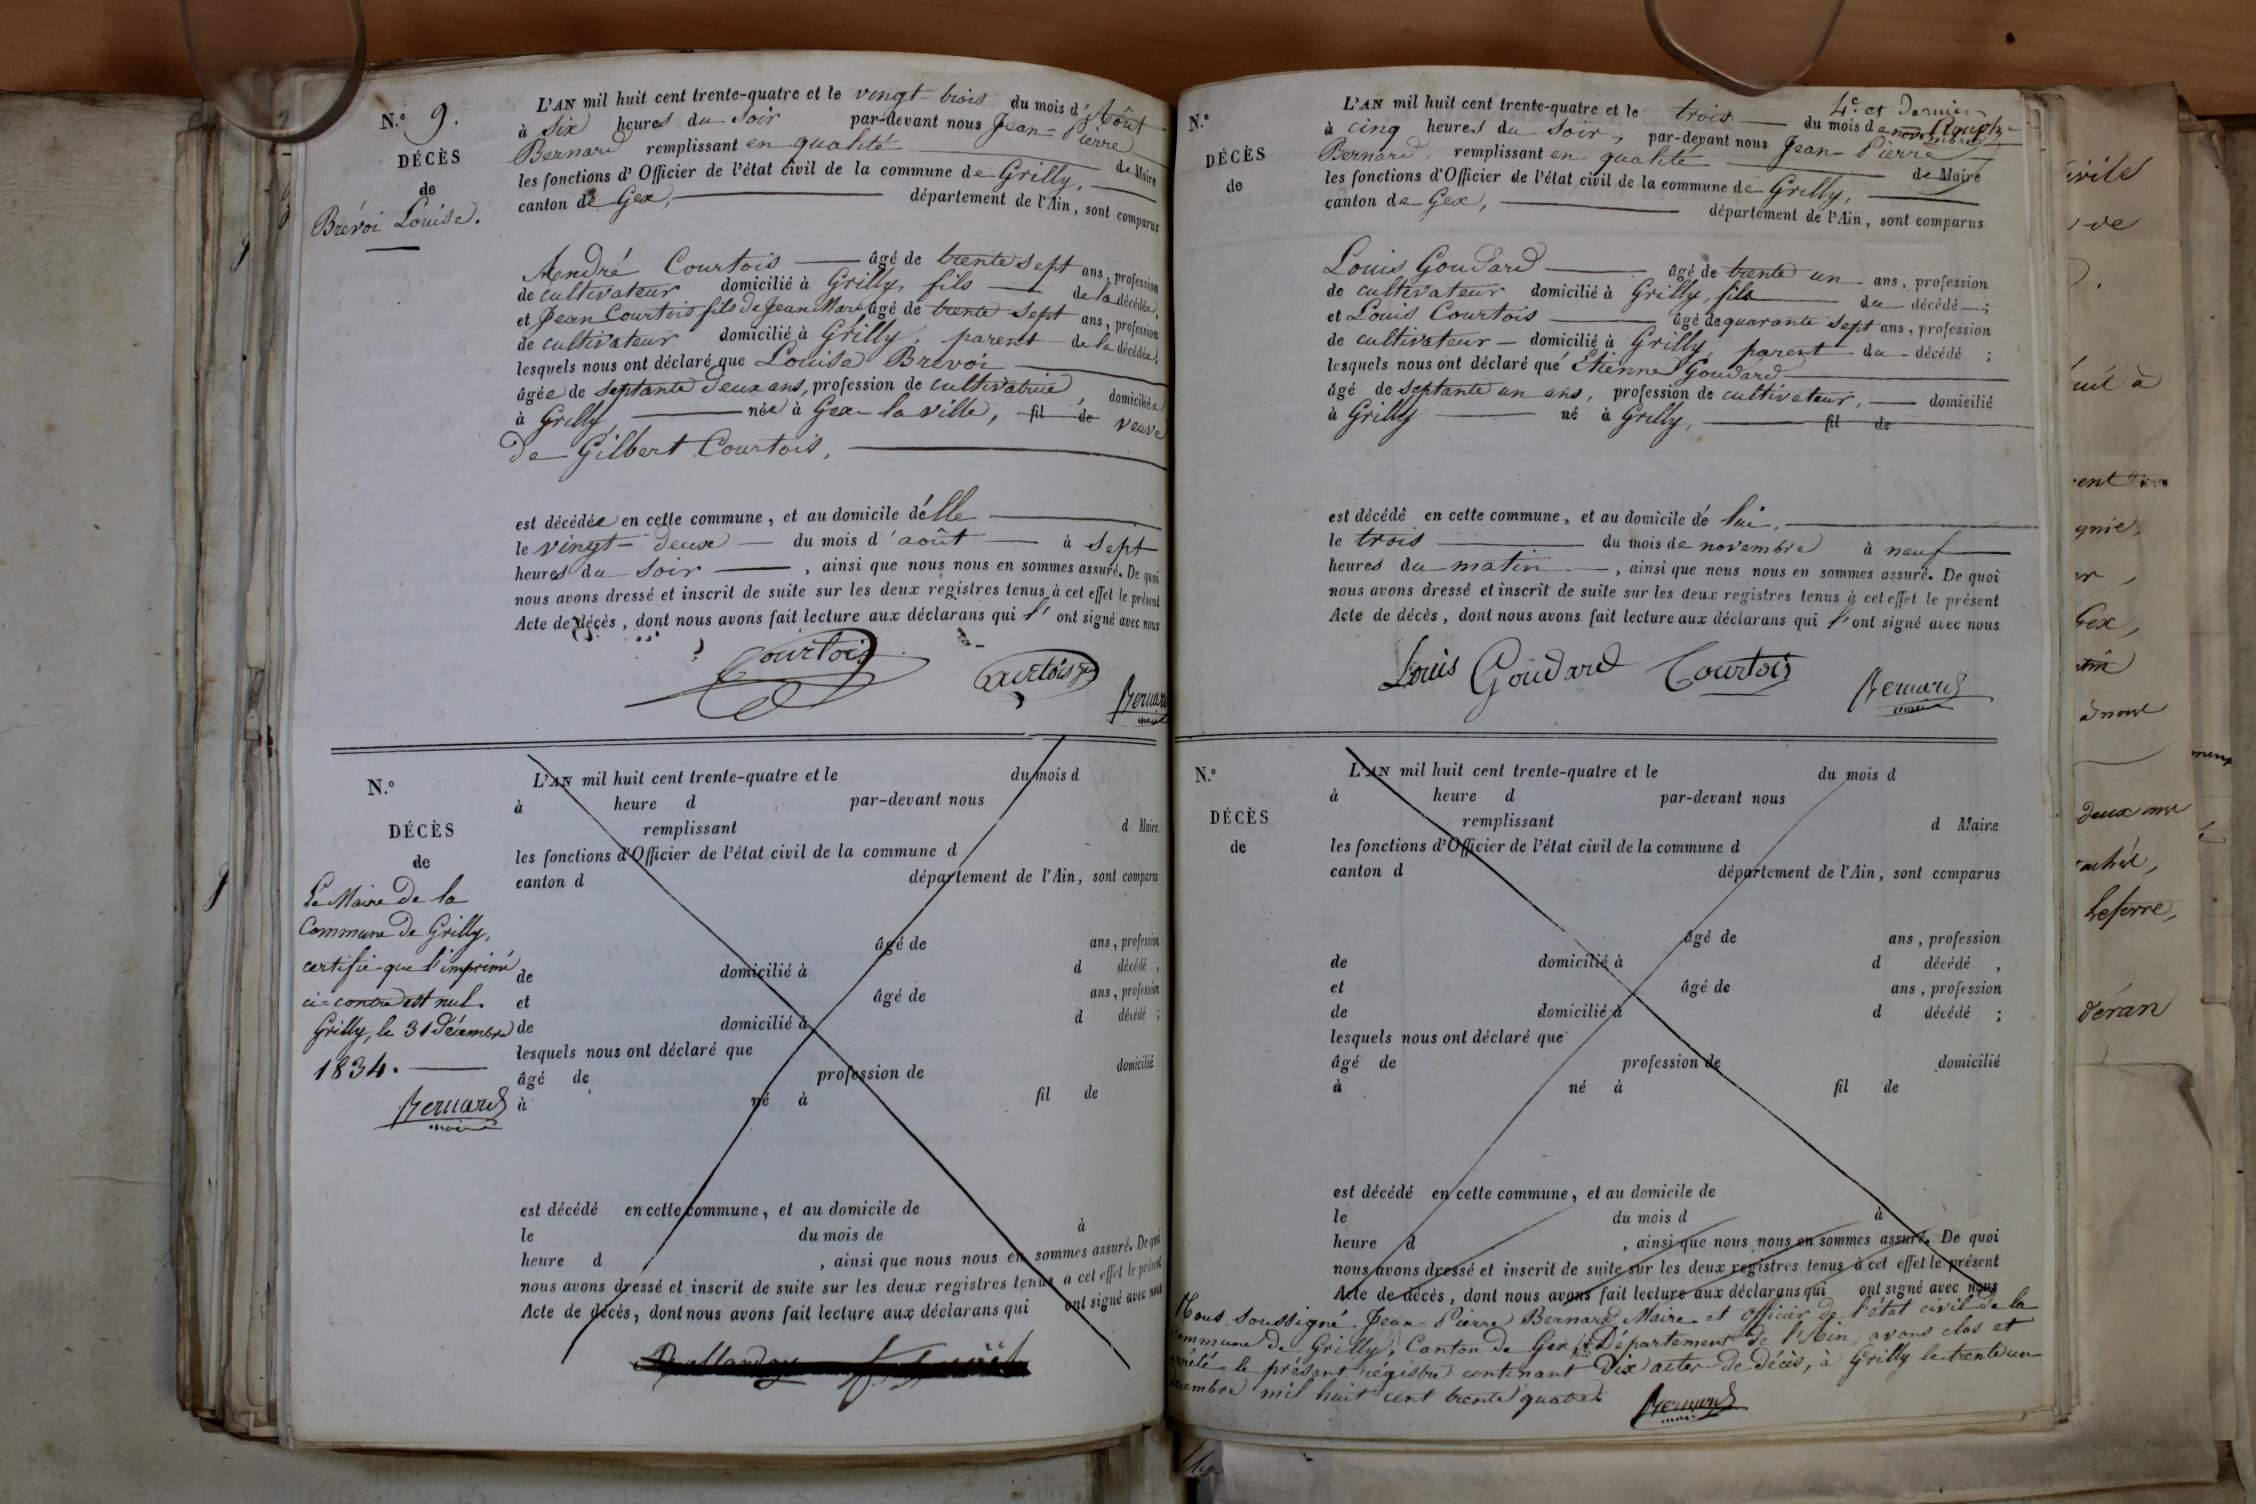 N.° 9.
DÉCÈS
de
Brévoi Louise.
L'AN mil huit cent trente-quatre et le vingt-trois du mois d'Aôut
à six heures du soir par-devant nous Jean-Pierre
Bernard remplissant en qualité de Maire
les fonctions d'Officier de l'état civil de la commune de Grilly,
canton de Gex, département de l'Ain, sont comparus
André Courtois âgé de trente sept ans, profession
de cultivateur domicilié à Grilly, fils de la décédée,
et Jean Courtois fils de Jean Marie âgé de trente sept ans, profession
de cultivateur domicilié à Grilly, parent de la décédée;
lesquels nous ont déclaré que Louise Brevoi
âgée de septante deux ans, profession de cultivatrice, domiciliée
à Grilly, née à Gex-la ville, fil de veuve
de Gilbert Courtois,
est décédée en cette commune, et au domicile d'élle
le vingt-deux du mois d'août à sept
heures du soir, ainsi que nous nous en sommes assuré. De quoi
nous avons dressé et inscrit de suite sur les deux registres tenus à cet effet le présent
Acte de décès, dont nous avons fait lecture aux déclarans qui l'ont signé avec nous
Courtois Courtois Bernard
maire
N.°
DÉCÈS
de
Le Maire de la
Commune de Grilly,
certifie que l'imprimé
ci-contre est nul.
Grilly, le 31 Décembre
1834.
Bernard
maire
L'AN mil huit cent trente-quatre et le du mois d
à heure d par-devant nous
remplissant d Maire
les fonctions d'Officier de l'état civil de la commune d
canton d département de l'Ain, sont comparu
âgé de ans, profession
de domicilié à d décédé,
et âgé de ans, profession
de domicilié à d décédé;
lesquels nous ont déclaré que
âgé de profession de domicilié
à né à fil de
est décédé en cette commune, et au domicile de
le du mois de à
heure d, ainsi que nous nous en sommes assuré. De quoi
nous avons dressé et inscrit de suite sur les deux registres tenus à cet effet le présent
Acte de décès, dont nous avons fait lecture aux déclarans qui ont signé avec nous
N.°
DÉCÈS
de
4e et dernier
L'AN mil huit cent trente-quatre et le trois du mois de novembre
à cinq heures du soir, par-devant nous Jean-Pierre
Bernard, remplissant en qualité de Maire
les fonctions d'Officier de l'état civil de la commune de Grilly,
canton de Gex, département de l'Ain, sont comparus
Louis Goudard âgé de trente un ans, profession
de cultivateur domicilié à Grilly, fils du décédé;
et Louis Courtois âgé de quarante sept ans, profession
de cultivateur domicilié à Grilly, parent du décédé;
lesquels nous ont déclaré que Etienne Goudard
âgé de septante un ans, profession de cultivateur, domicilié
à Grilly né à Grilly, fil de
est décédé en cette commune, et au domicile de lui,
le trois du mois de novembre à neuf
heures du matin, ainsi que nous nous en sommes assuré. De quoi
nous avons dressé et inscrit de suite sur les deux registres tenus à cet effet le présent
Acte de décès, dont nous avons fait lecture aux déclarans qui l'ont signé avec nous
Louis Goudard Courtois Bernard
maire
N.°
DÉCÈS
de
L'AN mil huit cent trente-quatre et le du mois d
à heure d par-devant nous
remplissant d Maire
les fonctions d'Officier de l'état civil de la commune d
canton d département de l'Ain, sont comparus
âgé de ans, profession
de domicilié à d décédé,
et âgé de ans, profession
de domicilié à d décédé;
lesquels nous ont déclaré que
âgé de profession de domicilié
à né à fil de
est décédé en cette commune, et au domicile de
le du mois d à
heure d, ainsi que nous nous en sommes assuré. De quoi
nous avons dressé et inscrit de suite sur les deux registres tenus à cet effet le présent
Acte de décès, dont nous avons fait lecture aux déclarans qui ont signé avec nous
Nous soussigné Jean-Pierre Bernard Maire et officier de l'état civil de la
commune de Grilly, Canton de Gex, Département de l'Ain, avons clos et
arrêté le présent régistre contenant Dix actes de décès, à Grilly le trente un
décembre mil huit cent trente quatre.
Bernard